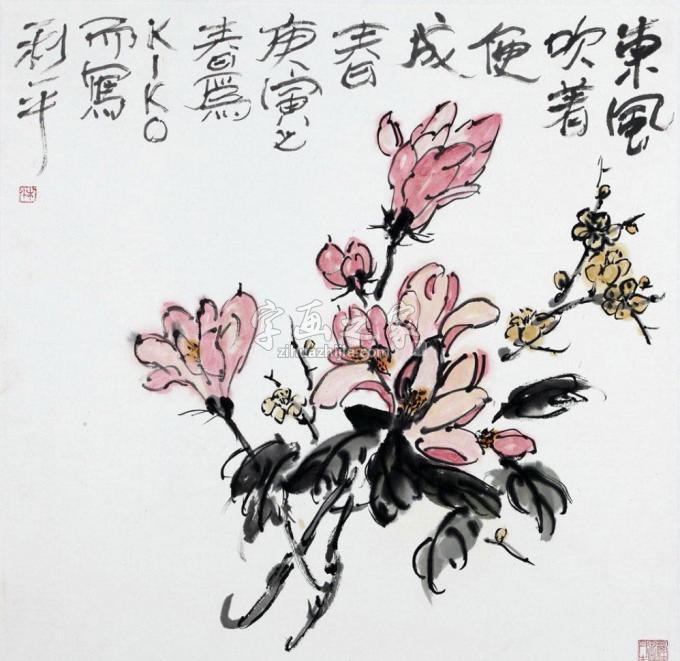 東風
吹着
便
成
春
庚寅之
春爲
KIKO
而寫
利平
字画之家
zihuazhijia.com